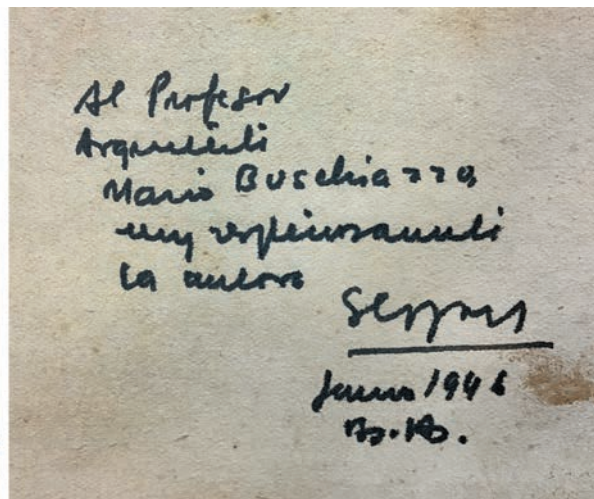 Al Profesor
Arquitecto
Mario Buschiazzo,
muy respetuosamente
la autora
1946
Bs. As.